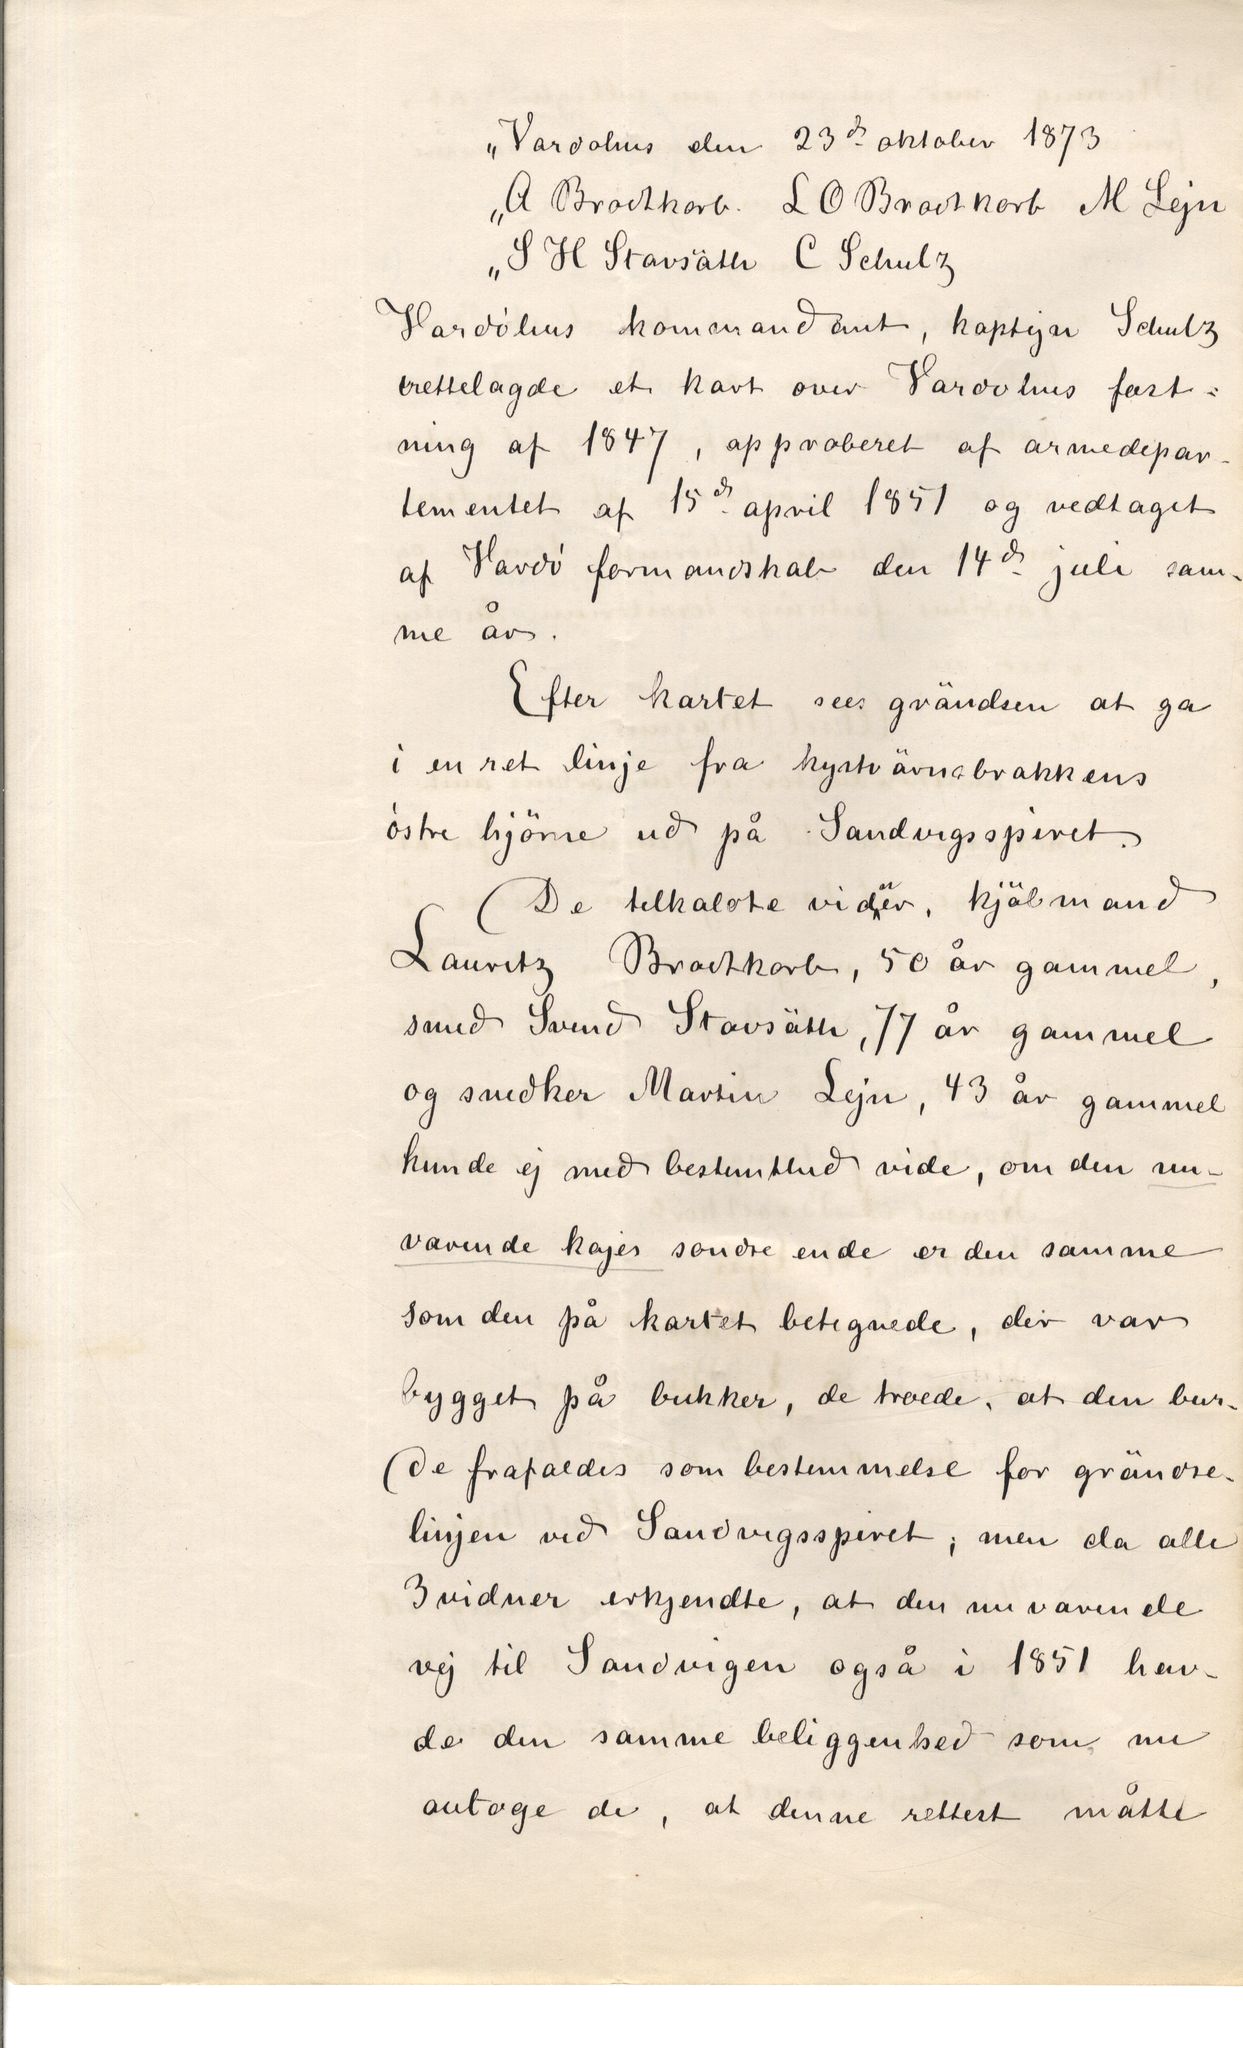 „Vardøhus den 23de oktober 1873
„A Brodtkorb. L O Brodtkorb M Lejn
„S H Stavsäth C Schulz
Vardøhus kommandant, kaptejn Schulz
rettelagde et kart over Vardøhus fæst-
ning af 1847, approberet af armedepar-
tementet af 15de april 1851 og vedtaget
af Vardø formandskab den 14de juli sam-
me år.
Efter kartet sees grändsen at ga
i en ret linje fra kystvärnsbrakkens
østre hjørne ud på Sandvigsspiret.
De tilkaldte vidner, kjöbmand
Lauritz Brodtkorb, 50 år gammel,
smed Svend Stavsäth, 77 år gammel
og snedker Martin Lejn, 43 år gammel
kunde ej med bestemthed vide, om den nu-
værende kajes søndre ende er den samme
som den på kartet betegnede, der var
bygget på bukker, de troede, at den bur-
de frafaldes som bestemmelse for grändse-
linjen ved Sandvigsspiret; men da alle
3 vidner erkjendte, at den nuværende
vej til Sandvigen også i 1851 hav-
de den samme beliggenhed som nu
antoge de, at denne rettest måtte